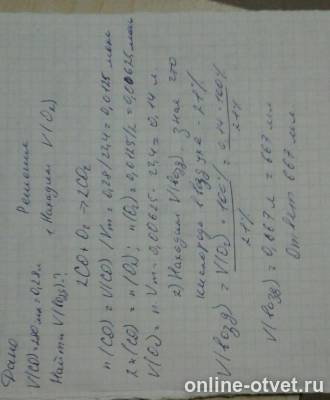 Дано
V(CO)=280мл=0,28л
Найти V(возд)?
Решения
1 Находим V(O₂)
2CO + O₂ → 2CO₂
n(CO) = V(CO)/Vm = 0,28/22,4 = 0,0125 моль
2n(CO) = n(O₂); n(O₂) = 0,0125/2 = 0,00625 моль
V(O₂) = n · Vm = 0,00625 · 22,4 = 0,14 л
2) Находим V(возд) зная что
кислорода в воздухе - 21%
V(возд) = V(O₂) · 100% / 21% = 0,14 · 100% / 21%
V(возд) = 0,667 л = 667 мл
Ответ 667 мл
online-otvet.ru